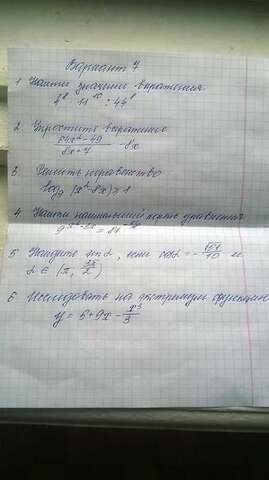 Вариант 7
1 Найти значение выражения
4⁸ · 11¹⁰ : 44⁸
2 Упростить выражение
(64x² - 49)/(8x + 7) - 8x
3 Решить неравенство
log₉ (x² - 8x) ≥ 1
4. Найти наименьший корень уравнения
5 Найдите sin α, если cos α = - и
α ∈ (π, 3π/2)
6 Исследовать на экстремум функцию
y = 5 + 9x - x³/3